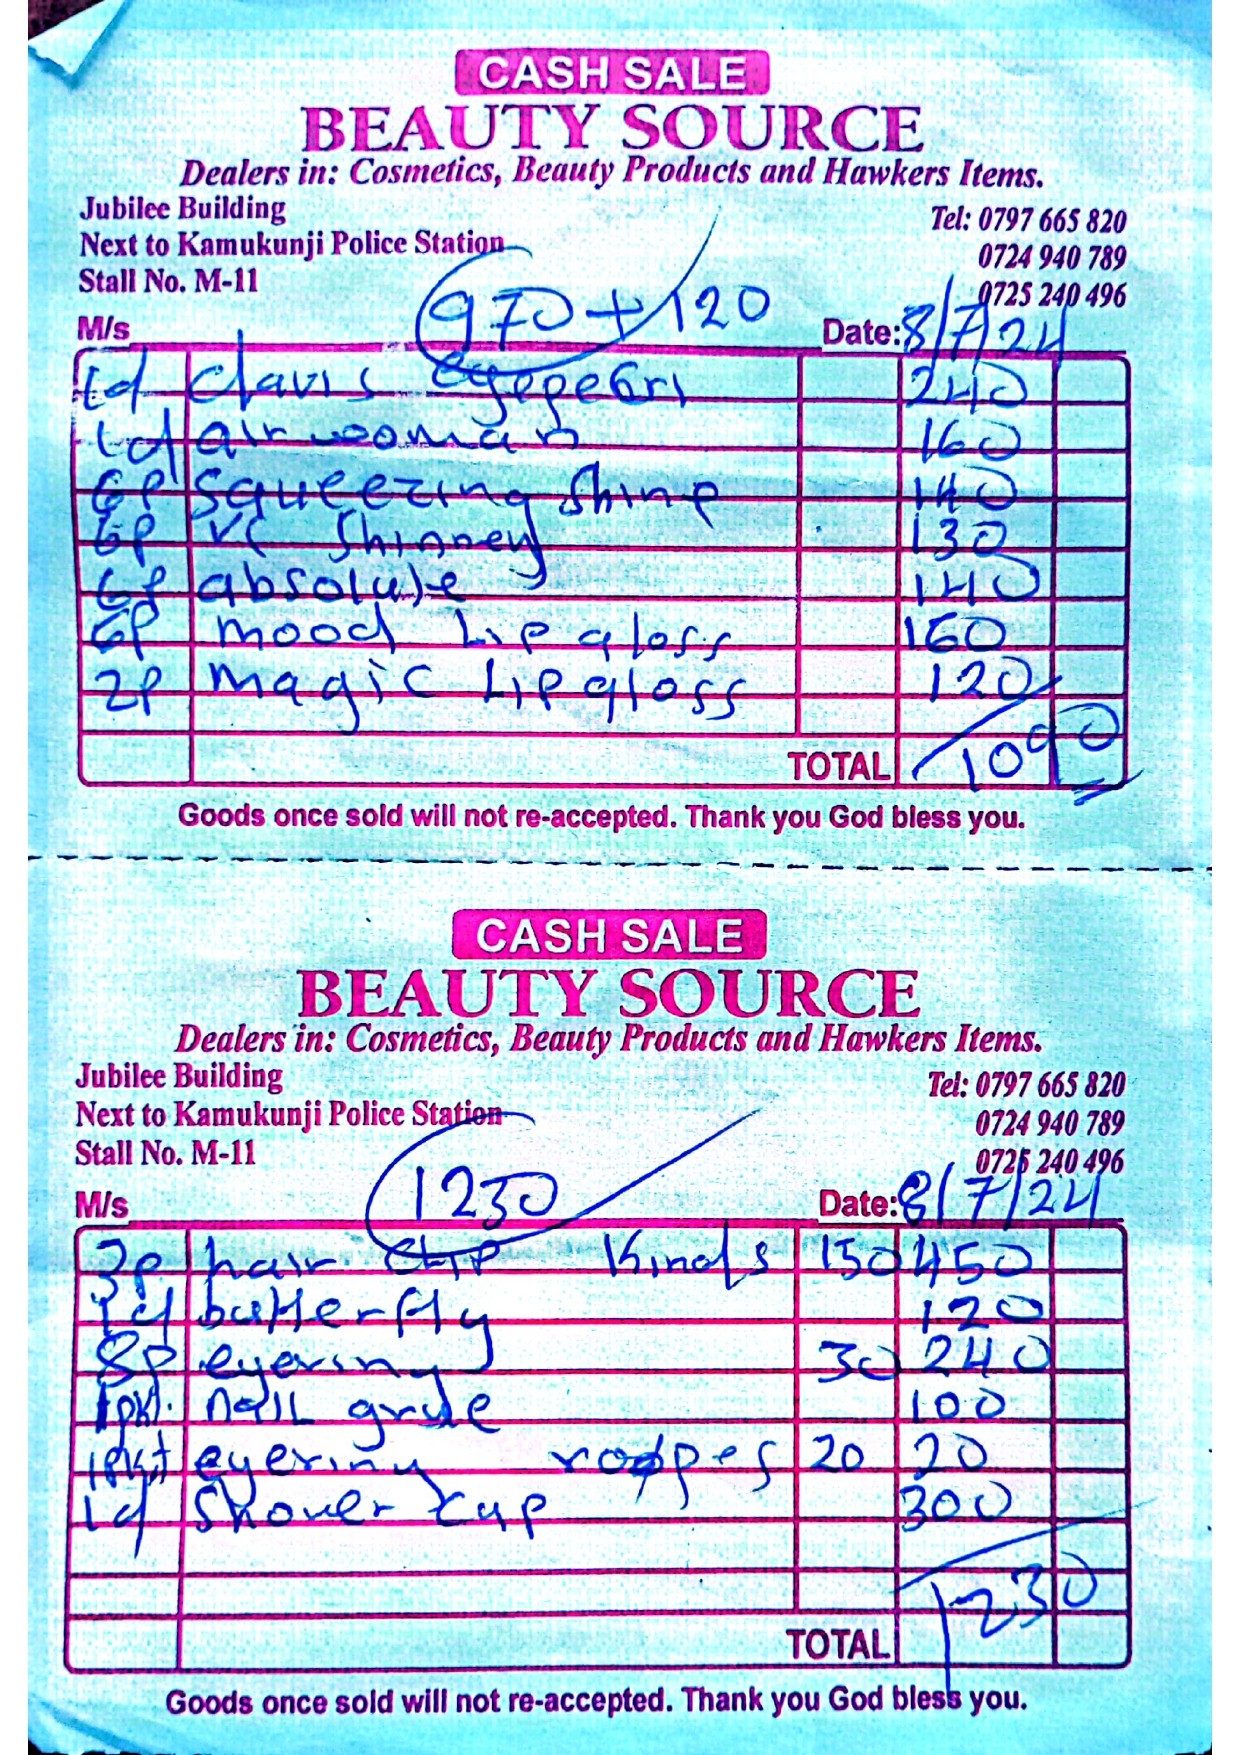 CASH SALE
BEAUTY SOURCE
Dealers in: Cosmetics, Beauty Products and Hawkers Items.
Jubilee Building
Tel: 0797 665 820
Next to Kamukunji Police Station
0724 940 789
Stall No. M-11
0725 240 496
970 + 120
M/s
Date: 8/7/24
1d clavis 240
1d air wooman 160
6P squeezing shine 140
6P VC Shinney 130
6P absolute 140
6P mood Lip gloss 160
2P magic Lip gloss 120
TOTAL 1090
Goods once sold will not re-accepted. Thank you God bless you.
CASH SALE
BEAUTY SOURCE
Dealers in: Cosmetics, Beauty Products and Hawkers Items.
Jubilee Building
Tel: 0797 665 820
Next to Kamukunji Police Station
0724 940 789
Stall No. M-11
0725 240 496
1230
M/s
Date: 8/7/24
3p hair clip Kinds 150 450
1d butterfly 120
8p eyering 30 240
1pkt. nail grue 100
1pkt eyering roopes 20 20
1d shower cup 300
TOTAL 1230
Goods once sold will not re-accepted. Thank you God bless you.